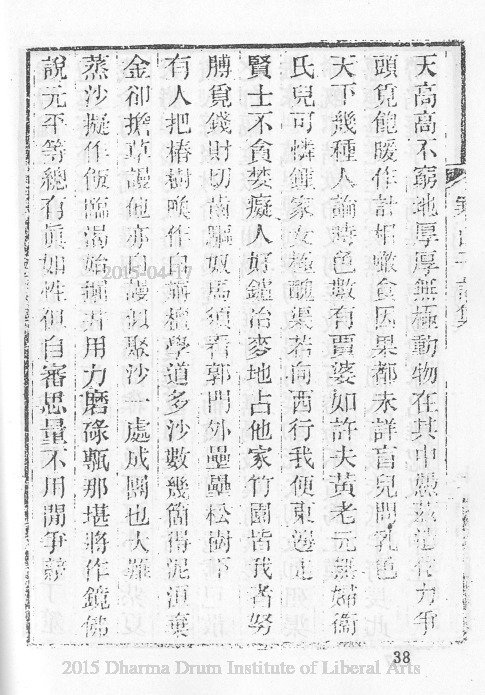 天高高不窮地厚厚無極動物在其中憑茲造化力爭
頭覓飽暖作計相噉食因果都未詳盲兒問乳色
天下幾種人論時色數有賈婆如許夫黃老元無婦衛
氏兒可憐鍾家女極醜渠若向西行我便東邊走
賢士不貪婪癡人好鑪冶麥地占他家竹園皆我者努
膊覓錢財切齒驅奴馬須看郭門外壘壘松柏下
有人把椿樹喚作白旃檀學道多沙數幾箇得泥洹棄
金卻擔草謾他亦自謾似聚沙一處成團也大難
蒸沙擬作飯臨渴始掘井用力磨碌甎那堪將作鏡佛
說元平等總有眞如性但自審思量不用閒爭競
寒山子詩集
38
2015-04-17
2015 Dharma Drum Institute of Liberal Arts